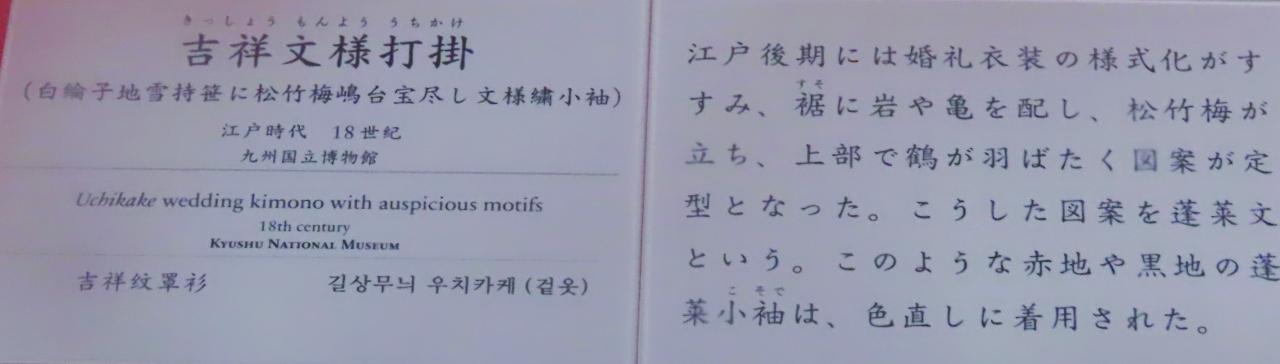 きっしょう もんよう うちかけ
吉祥文様打掛
(白綸子地雪持笹に松竹梅嶋台宝尽し文様繍小袖)
江戸時代　18世紀
九州国立博物館
Uchikake wedding kimono with auspicious motifs
18th century
KYUSHU NATIONAL MUSEUM
吉祥纹罩衫
길상무늬 우치카케 (겉옷)
江戸後期には婚礼衣装の様式化がす
すそ
すみ、裾に岩や亀を配し、松竹梅が
立ち、上部で鶴が羽ばたく図案が定
型となった。こうした図案を蓬莱文
という。このような赤地や黒地の蓬
こそで
莱小袖は、色直しに着用された。